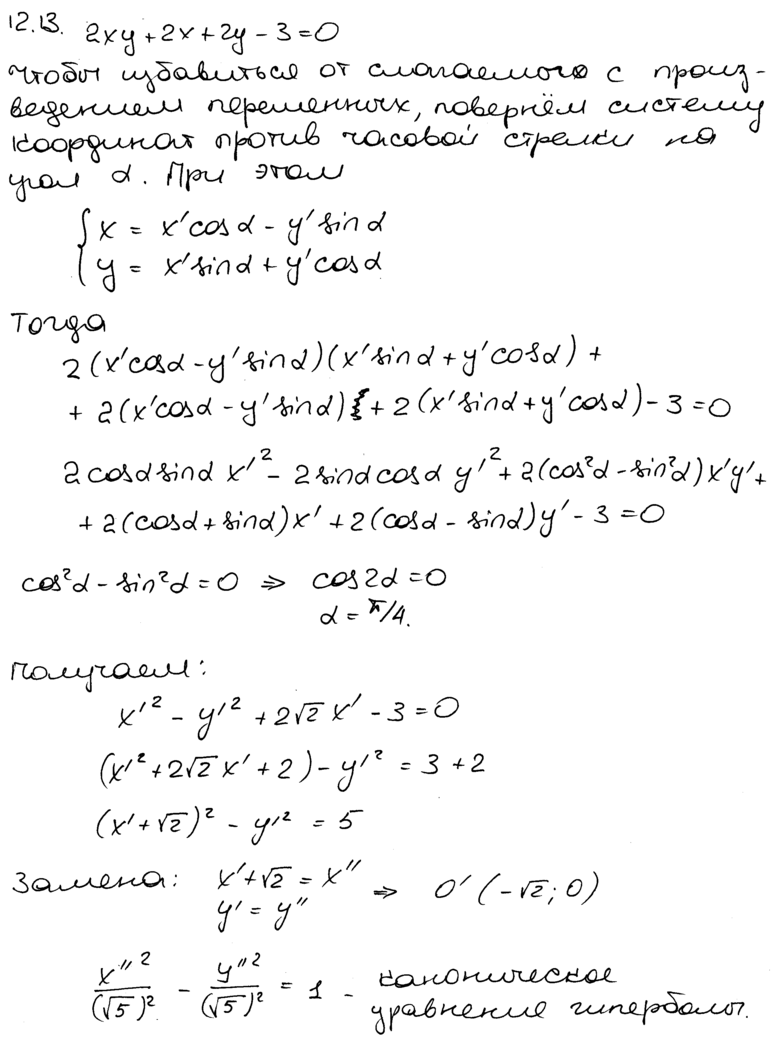 12.13. 2xy + 2x + 2y - 3 = 0
Чтобы избавиться от слагаемого с произ-
ведением переменных, повернём систему
координат против часовой стрелки на
угол α. При этом
{ x = x'cosα - y'sinα
{ y = x'sinα + y'cosα
Тогда
2(x'cosα - y'sinα)(x'sinα + y'cosα) +
+ 2(x'cosα - y'sinα) + 2(x'sinα + y'cosα) - 3 = 0
2cosα sinα x'² - 2sinα cosα y'² + 2(cos²α - sin²α)x'y' +
+ 2(cosα + sinα)x' + 2(cosα - sinα)y' - 3 = 0
cos²α - sin²α = 0 ⇒ cos2α = 0
α = π/4.
Получаем:
x'² - y'² + 2√2 x' - 3 = 0
(x'² + 2√2 x' + 2) - y'² = 3 + 2
(x' + √2)² - y'² = 5
Замена: x' + √2 = x'' ⇒ O'(-√2; 0)
y' = y''
x''²/(√5)² - y''²/(√5)² = 1 - каноническое
уравнение гиперболы.